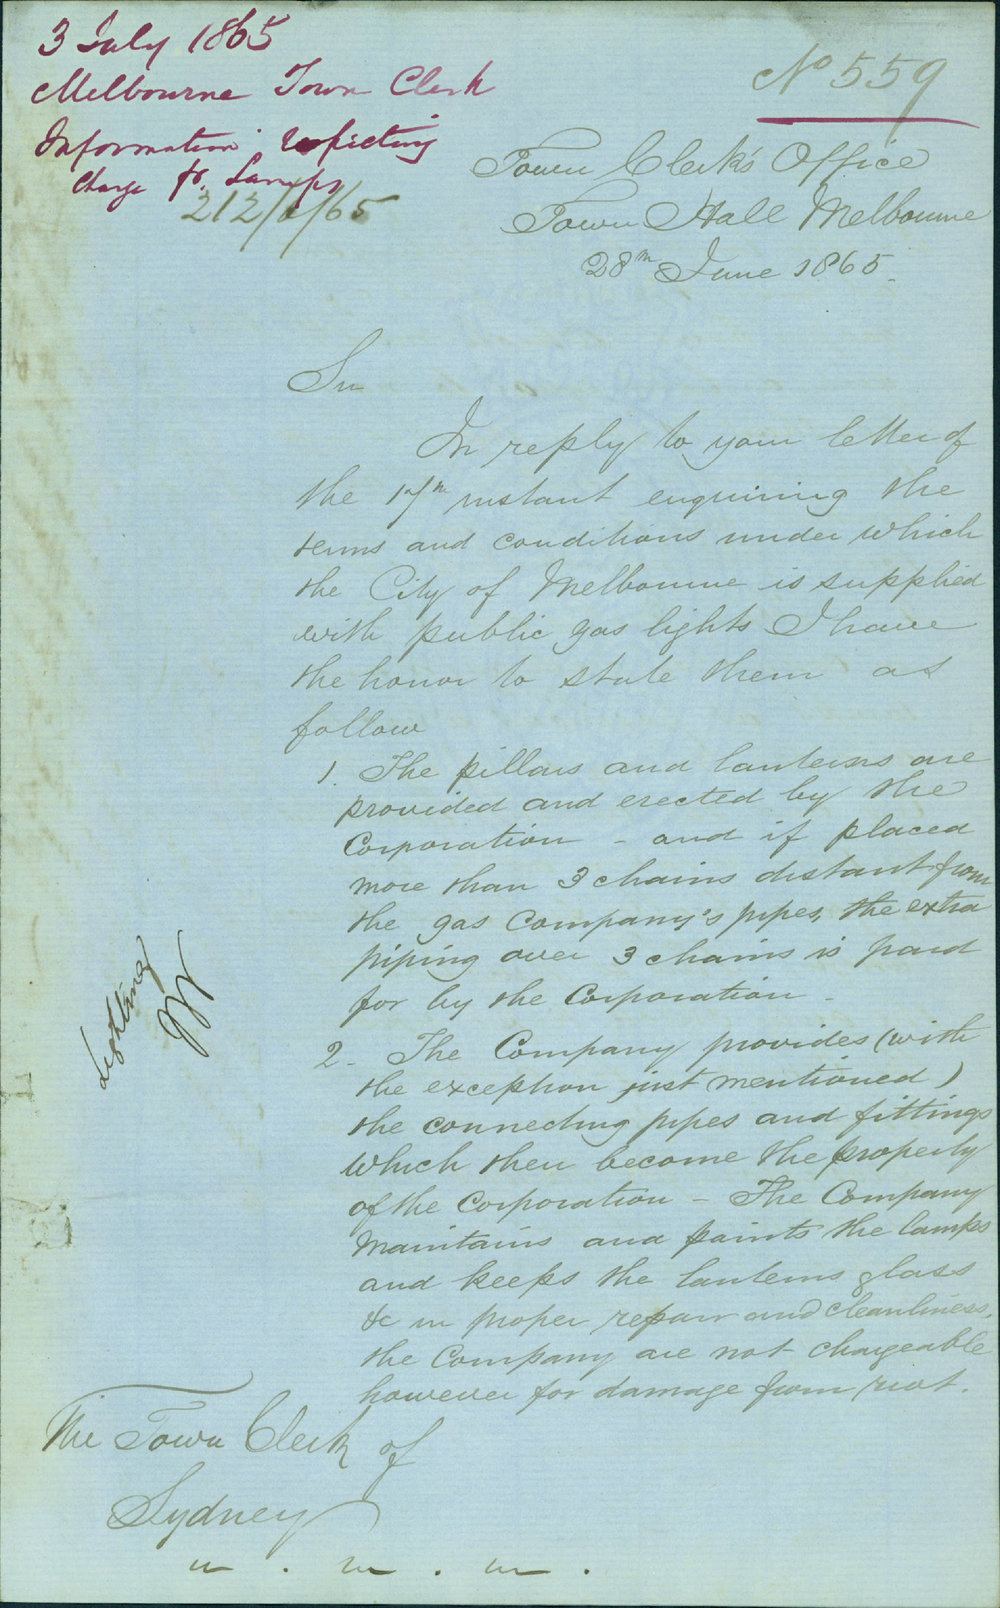 3 July 1865
Melbourne Town Clerk
Information respecting
charge fr. Lamps
212/6/65
No 559
Town Clerk's Office
Town Hall Melbourne
28th June 1865.
Sir
In reply to your letter of
the 17th instant enquiring the
terms and conditions under which
the City of Melbourne is supplied
with public gas lights I have
the honor to state them as
follow
1. The pillars and lanterns are
provided and erected by the
Corporation - and if placed
more than 3 chains distant from
the gas Company's pipes, the extra
piping over 3 chains is paid
for by the Corporation -
2 - The Company provides (with
the exception just mentioned)
the connecting pipes and fittings
which then become the property
of the Corporation - The Company
Maintains and paints the lamps
and keeps the lanterns glass
&c in proper repair and cleanliness.
the Company are not chargeable
however for damage from riot.
Lighting
The Town Clerk of
Sydney